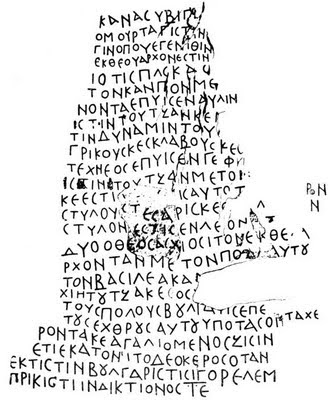 ΚΑΝΑΣΥΒΙΓΙ
ΟΜΟΥΡΤΑΓΙΣΤΙΝ
ΓΙΝΟΠΟΥΕΓΕΝΙΘΙΝ
ΕΚΘΕΟΥΑΡΧΟΝΕΣΤΙΝ
ΙΣΤΙΣΠΛΣΚΑΣ
ΤΟΝΚΑΝΠΟΝΜΕ
ΝΟΝΤΑΕΠΥΙΣΕΝΑΥΛΙΝ
ΙΣΤΙΝΤΟΥΤΖΑΝΚΕ
ΤΙΝΔΥΝΑΜΙΝΤΟΥ
ΓΡΙΚΟΥΣΚΕΣΚΛΑΒΟΥΣΚΕ
ΤΕΧΝΕΟΣΕΠΥΙΣΕΝΓΕΦΙ
ΙΣΤΙΝΤΟΥΤΖΑΝΜΕΤΟ
ΚΕΕΣΤΙ ΙΣΑΥΤΟΤ
ΣΤΥΛΟΥΣΤΕΣΑΡΙΣΚΕ
ΣΤΥΛΟΝΕΣΤΙΣΕΝΛΕΟΝ
ΔΥΟΟΘΕΟΣΑΞΙΟΣΙΤΟΝΕΚΘΕ
ΡΧΟΝΤΑΝΜΕΤΟΝΠΟΔΑΑΥΤΟΥ
ΤΟΝΒΑΣΙΛΕΑΚΑ
ΧΙΗΤΟΥΤΖΑΚΕΕΟΣ
ΤΟΥΣΠΟΛΟΥΣΒΟΥΛΓΑΡΙΣΕΠΕ
ΤΟΥΣΕΧΘΡΟΥΣΑΥΤΟΥΥΠΟΤΑΣΟΝΤΑΧΕ
ΡΟΝΤΑΚΕΑΓΑΛΙΟΜΕΝΟΣΖΙΣΙΝ
ΕΤΙΕΚΑΤΟΝΙΤΟΔΕΟΚΕΡΟΣΟΤΑΝ
ΕΚΤΙΣΤΙΝΒΟΥΛΓΑΡΙΣΤΙΣΙΓΟΡΕΛΕΜ
ΓΡΙΚΙΣΤΙΙΝΔΙΚΤΙΟΝΟΣΙΕ